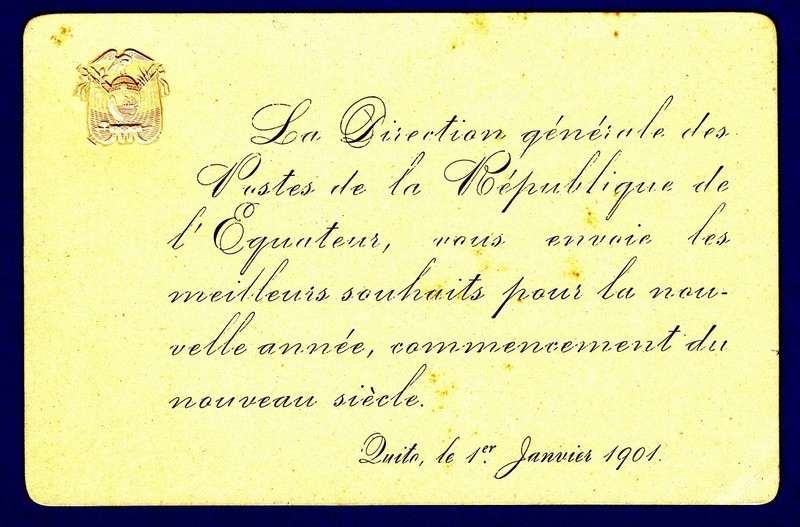 La Direction générale des
Postes de la République de
l'Equateur, vous envoie les
meilleurs souhaits pour la nou-
velle année, commencement du
nouveau siècle.
Quito, le 1er. Janvier 1901.